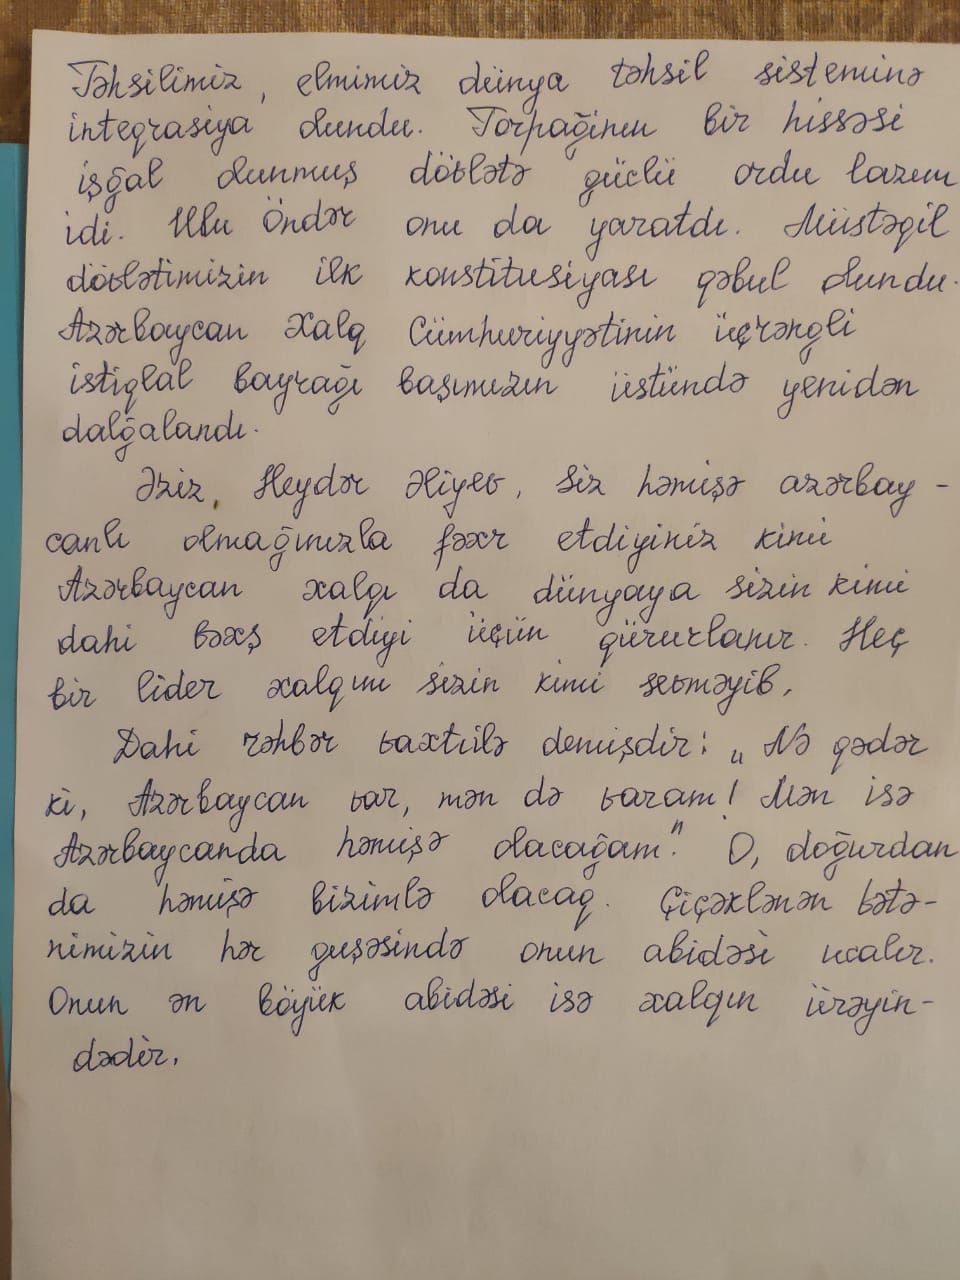 Təhsilimiz, elmimiz dünya təhsil sisteminə
inteqrasiya olundu. Torpağının bir hissəsi
işğal olunmuş dövlətə güclü ordu lazım
idi. Ulu Öndər onu da yaratdı. Müstəqil
dövlətimizin ilk konstitusiyası qəbul olundu.
Azərbaycan Xalq Cümhuriyyətinin üçrəngli
istiqlal bayrağı başımızın üstündə yenidən
dalğalandı.
Əziz, Heydər Əliyev, Siz həmişə azərbay-
canlı olmağınızla fəxr etdiyiniz kimi
Azərbaycan xalqı da dünyaya sizin kimi
dahi bəxş etdiyi üçün qürurlanır. Heç
bir lider xalqını sizin kimi sevməyib.
Dahi rəhbər vaxtilə demişdir: „Nə qədər
ki, Azərbaycan var, mən də varam! Mən isə
Azərbaycanda həmişə olacağam". O, doğurdan
da həmişə bizimlə olacaq. Çiçəklənən vətə-
nimizin hər guşəsində onun abidəsi ucalır.
Onun ən böyük abidəsi isə xalqın ürəyin-
dədir.